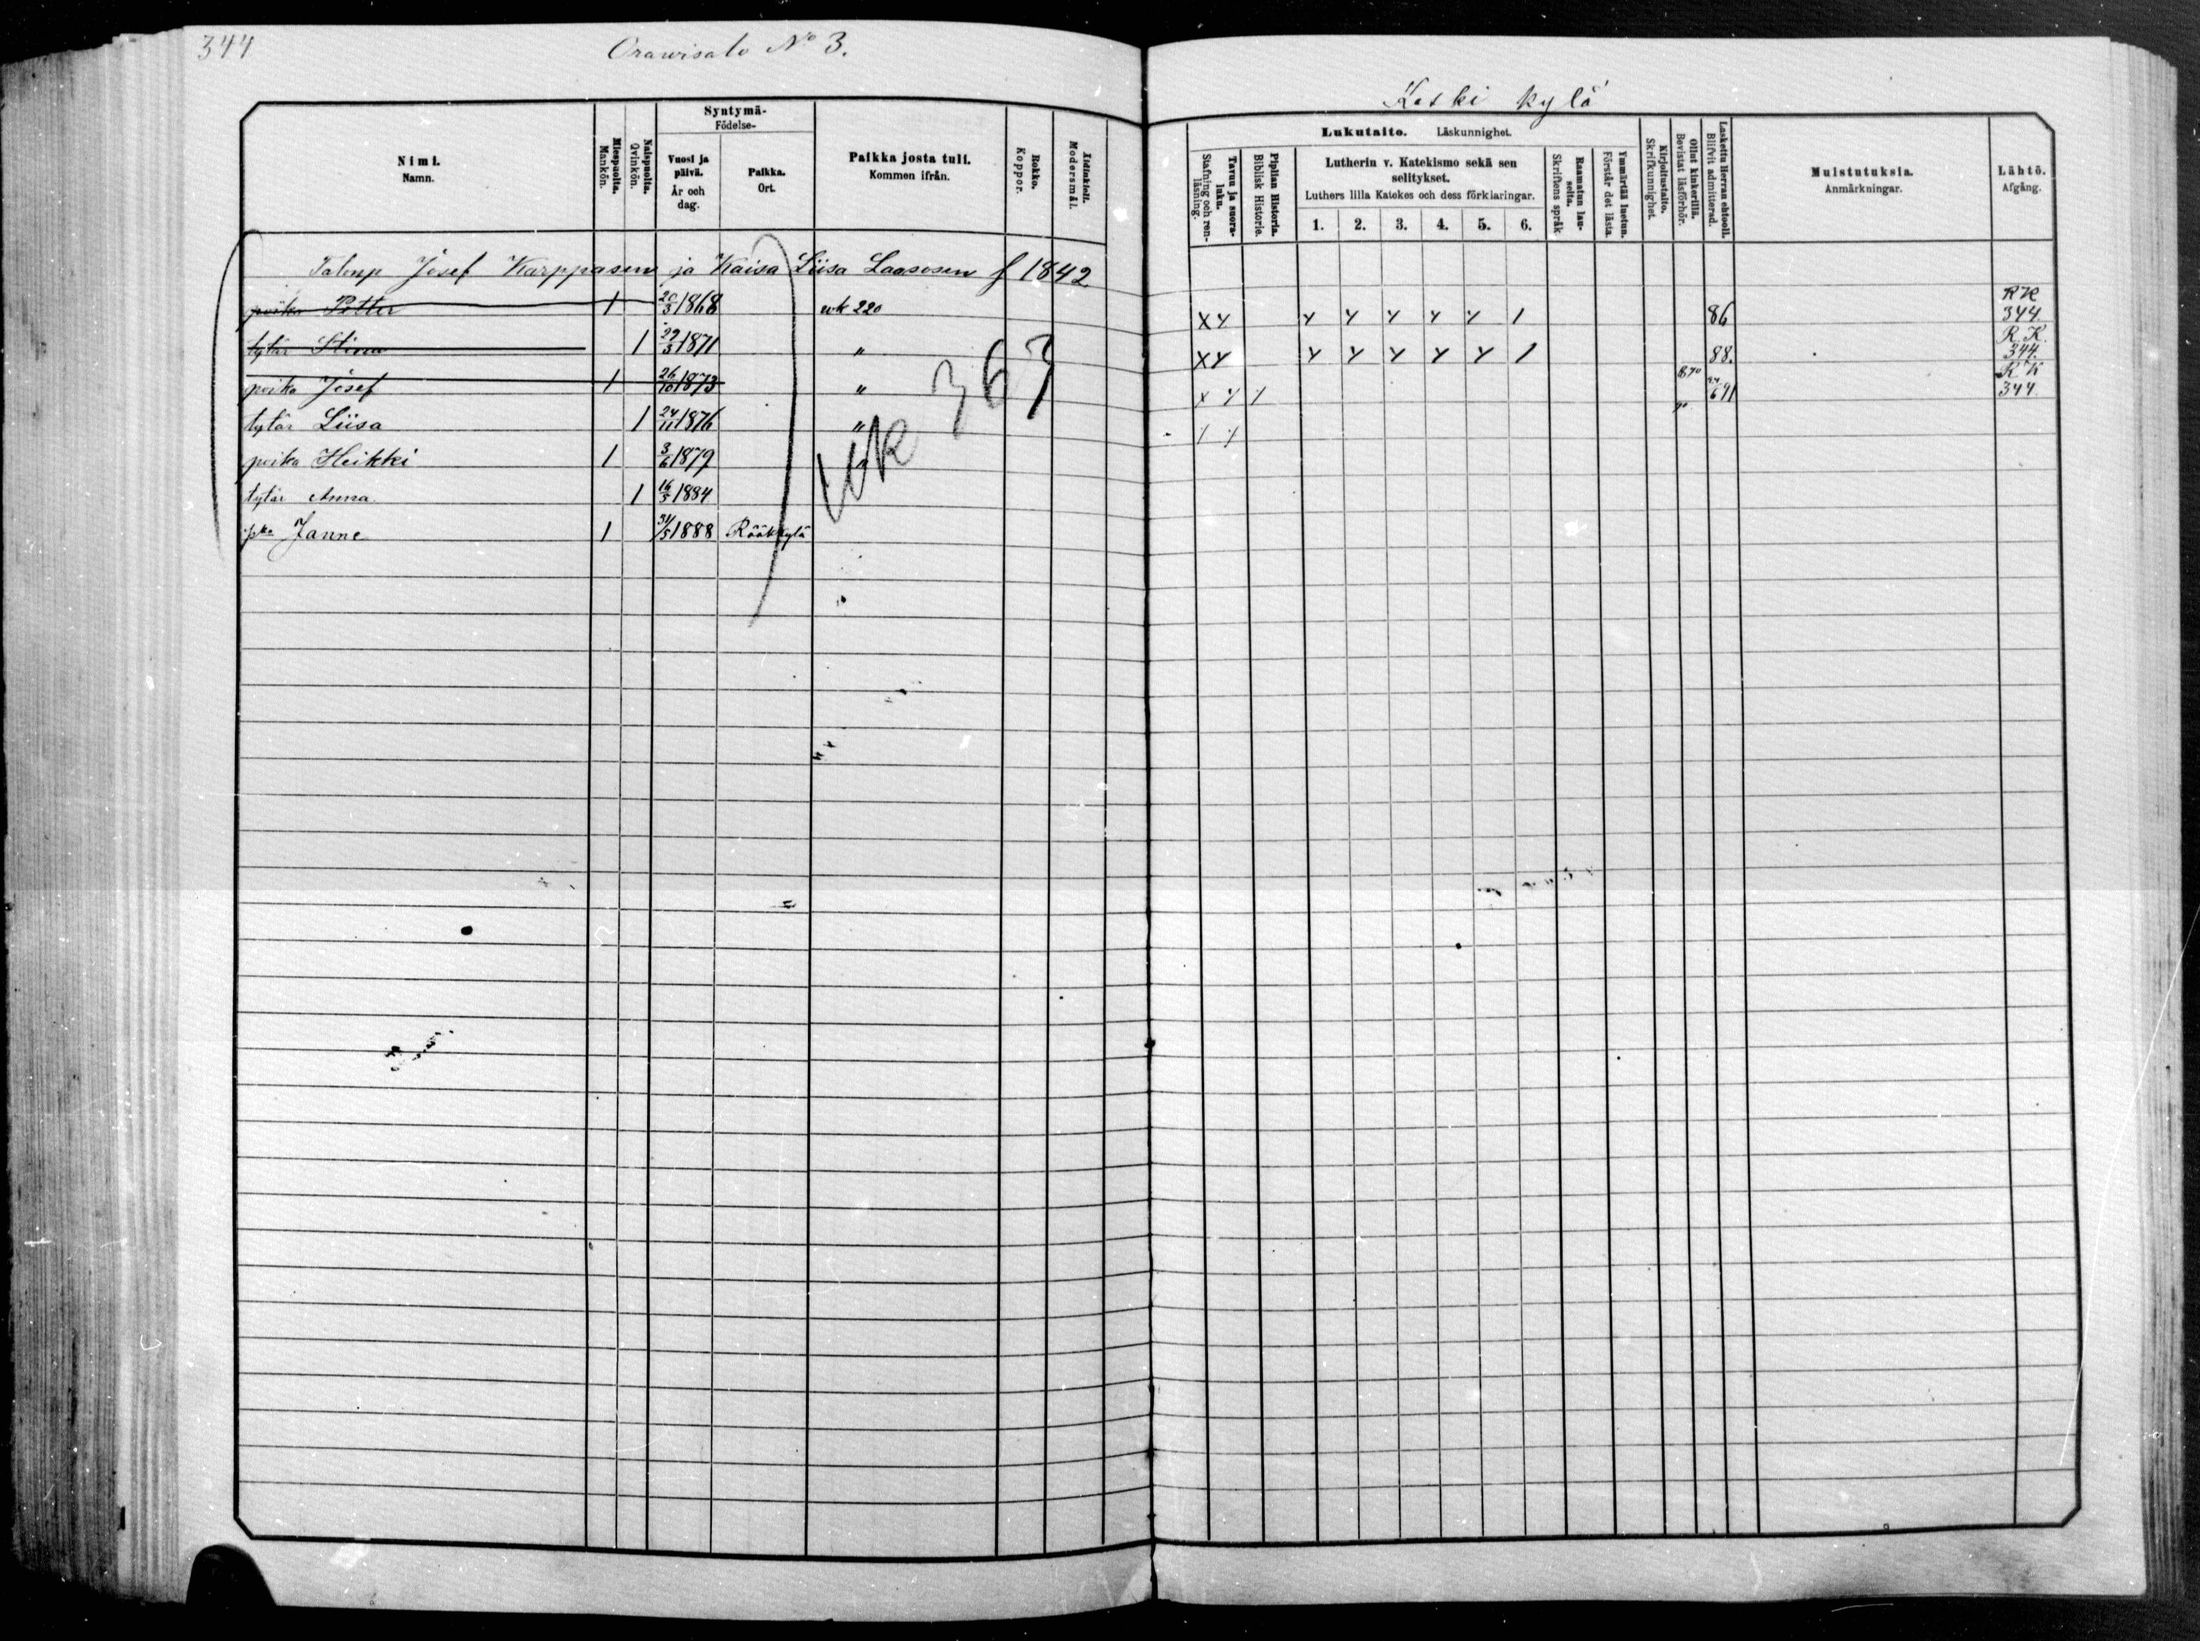 344
Orawisalo No 3.
Keski kylä
Nimi. Namn.
Miespuolia. Mankön.
Naispuolia. Qvinkön.
Syntymä- Födelse-
Vuosi ja päivä. År och dag.
Paikka. Ort.
Paikka josta tuli. Kommen ifrån.
Rokko. Koppor.
Äidinkieli. Modersmål.
Lukutaito. Läskunnighet.
Tavuu ja suora-luku. Stafning och ren-läsning.
Piplian Historia. Biblisk Historie.
Lutherin v. Katekismo sekä sen selitykset.
Luthers lilla Katekes och dess förklaringar.
1. 2. 3. 4. 5. 6.
Raamatun lau-seita. Skriftens språk.
Ymmärtää luetun. Förstår det lästa.
Kirjoitustaito. Skrifkunnighet.
Ollut kinkerillä. Bevistat läsförhör.
Laskettu Herran ehtooll. Blifvit admitterad.
Muistutuksia. Anmärkningar.
Lähtö. Afgång.
Talonp Josef Karppasen ja Kaisa Liisa Laasosen f 1842
poika Petter 1 20/3 1868 wk 220 XY Y Y Y Y Y 1 86 RK 344.
tytär Stina 1 29/3 1871 " XY Y Y Y Y Y 1 88. R.K. 344.
poika Josef 1 26/10 1873 " X Y / 24/6 91 RK 344.
tytär Liisa 1 24/11 1876 " / / 90
poika Heikki 1 3/6 1879
tytär Anna 1 16/5 1884
pka Janne 1 31/5 1888 Rääkkylä
wk 367